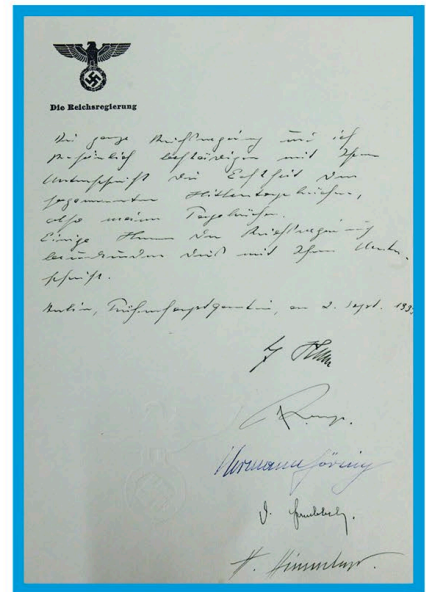 Die Reichsregierung
Die ganze Reichsregierung und ich
Persönlich bestätigen mit Ihrer
Unterschrift die Echtheit der
sogenannten Hitlertagebücher,
also meine Tagebücher.
Einige Herren der Reichsregierung
beurkunden dies mit Ihrer Unter-
schrift.
Berlin, Führerhauptquartier, am 2. Sept.
Hermann Göring
H. Himmler